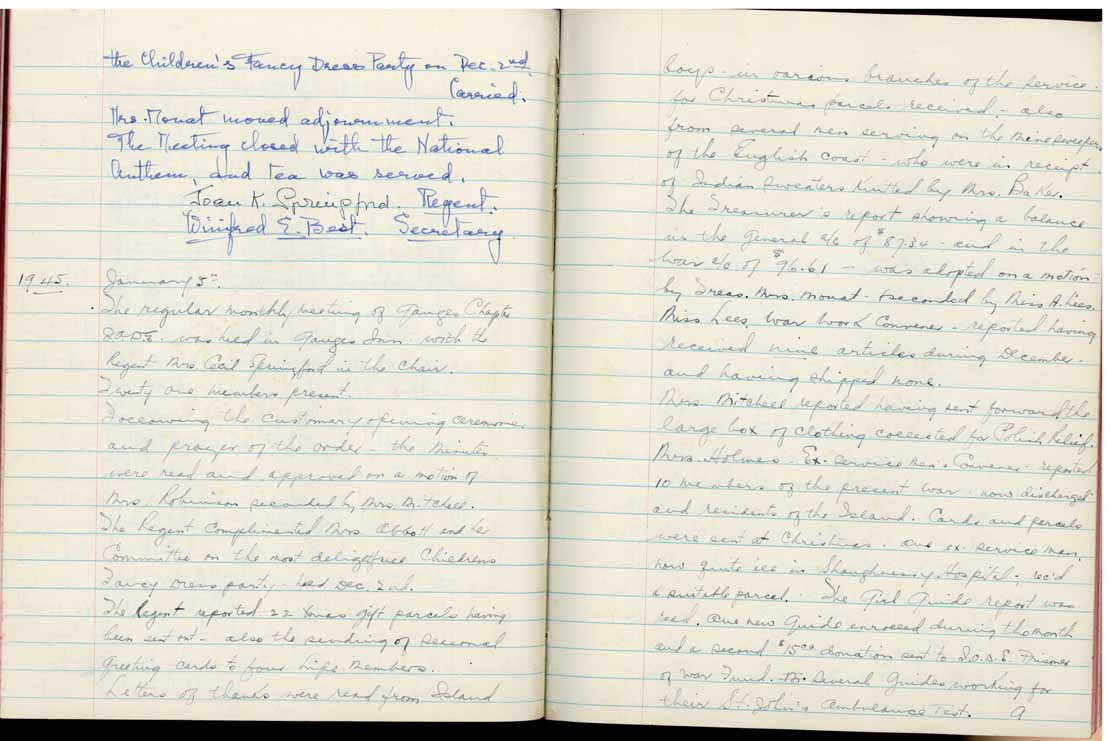 the Children's Fancy Dress Party on Dec. 2nd.
Carried.
Mrs. Mouat moved adjournment.
The Meeting closed with the National
Anthem, and Tea was served.
Joan K. Springford. Regent.
Winifred E. Best. Secretary.
1945. January 5th.
The regular monthly meeting of Ganges Chapter
I.O.D.E. was held in Ganges Inn - with the
Regent Mrs. Cecil Springford in the Chair.
Twenty one members present.
Following the customary opening ceremonies
and prayer of the order the Minutes
were read and approved on a motion of
Mrs. Robinson seconded by Mrs. Mitchell.
The Regent Complimented Mrs Abbott and her
Committee on the most delightful Childrens
Fancy Dress party - held Dec. 2nd.
The Regent reported 22 Xmas gift parcels having
been sent out - also the sending of seasonal
greeting cards to four Life Members.
Letters of thanks were read from Island
boys - in various branches of the service -
for Christmas parcels received - also
from several men serving on the minesweepers
of the English coast - who were in receipt
of Indian sweaters knitted by Mrs. Baker.
The Treasurer's report showing a balance
in the General a/c of $87.34 - and in the
War a/c of $96.61 - was adopted on a motion
by Treas. Mrs. Mouat - seconded by Miss A. Lees.
Miss Lees, War Work Convener - reported having
received nine articles during December -
and having shipped none.
Mrs. Mitchell reported having sent forward the
large box of clothing collected for Polish Relief.
Mrs. Holmes - Ex-service Men's Convener - reported
10 members of the present war - now discharged
and residents of the Island. Cards and parcels
were sent at Christmas. One ex-service man,
now quite ill in Shaughnessy Hospital, rec'd
a suitable parcel. The Girl Guide report was
read. One new Guide enrolled during the month
and a second $15.00 donation sent to I.O.D.E. Prisoner
of War Fund. Several Guides working for
their St. John's Ambulance Test. A